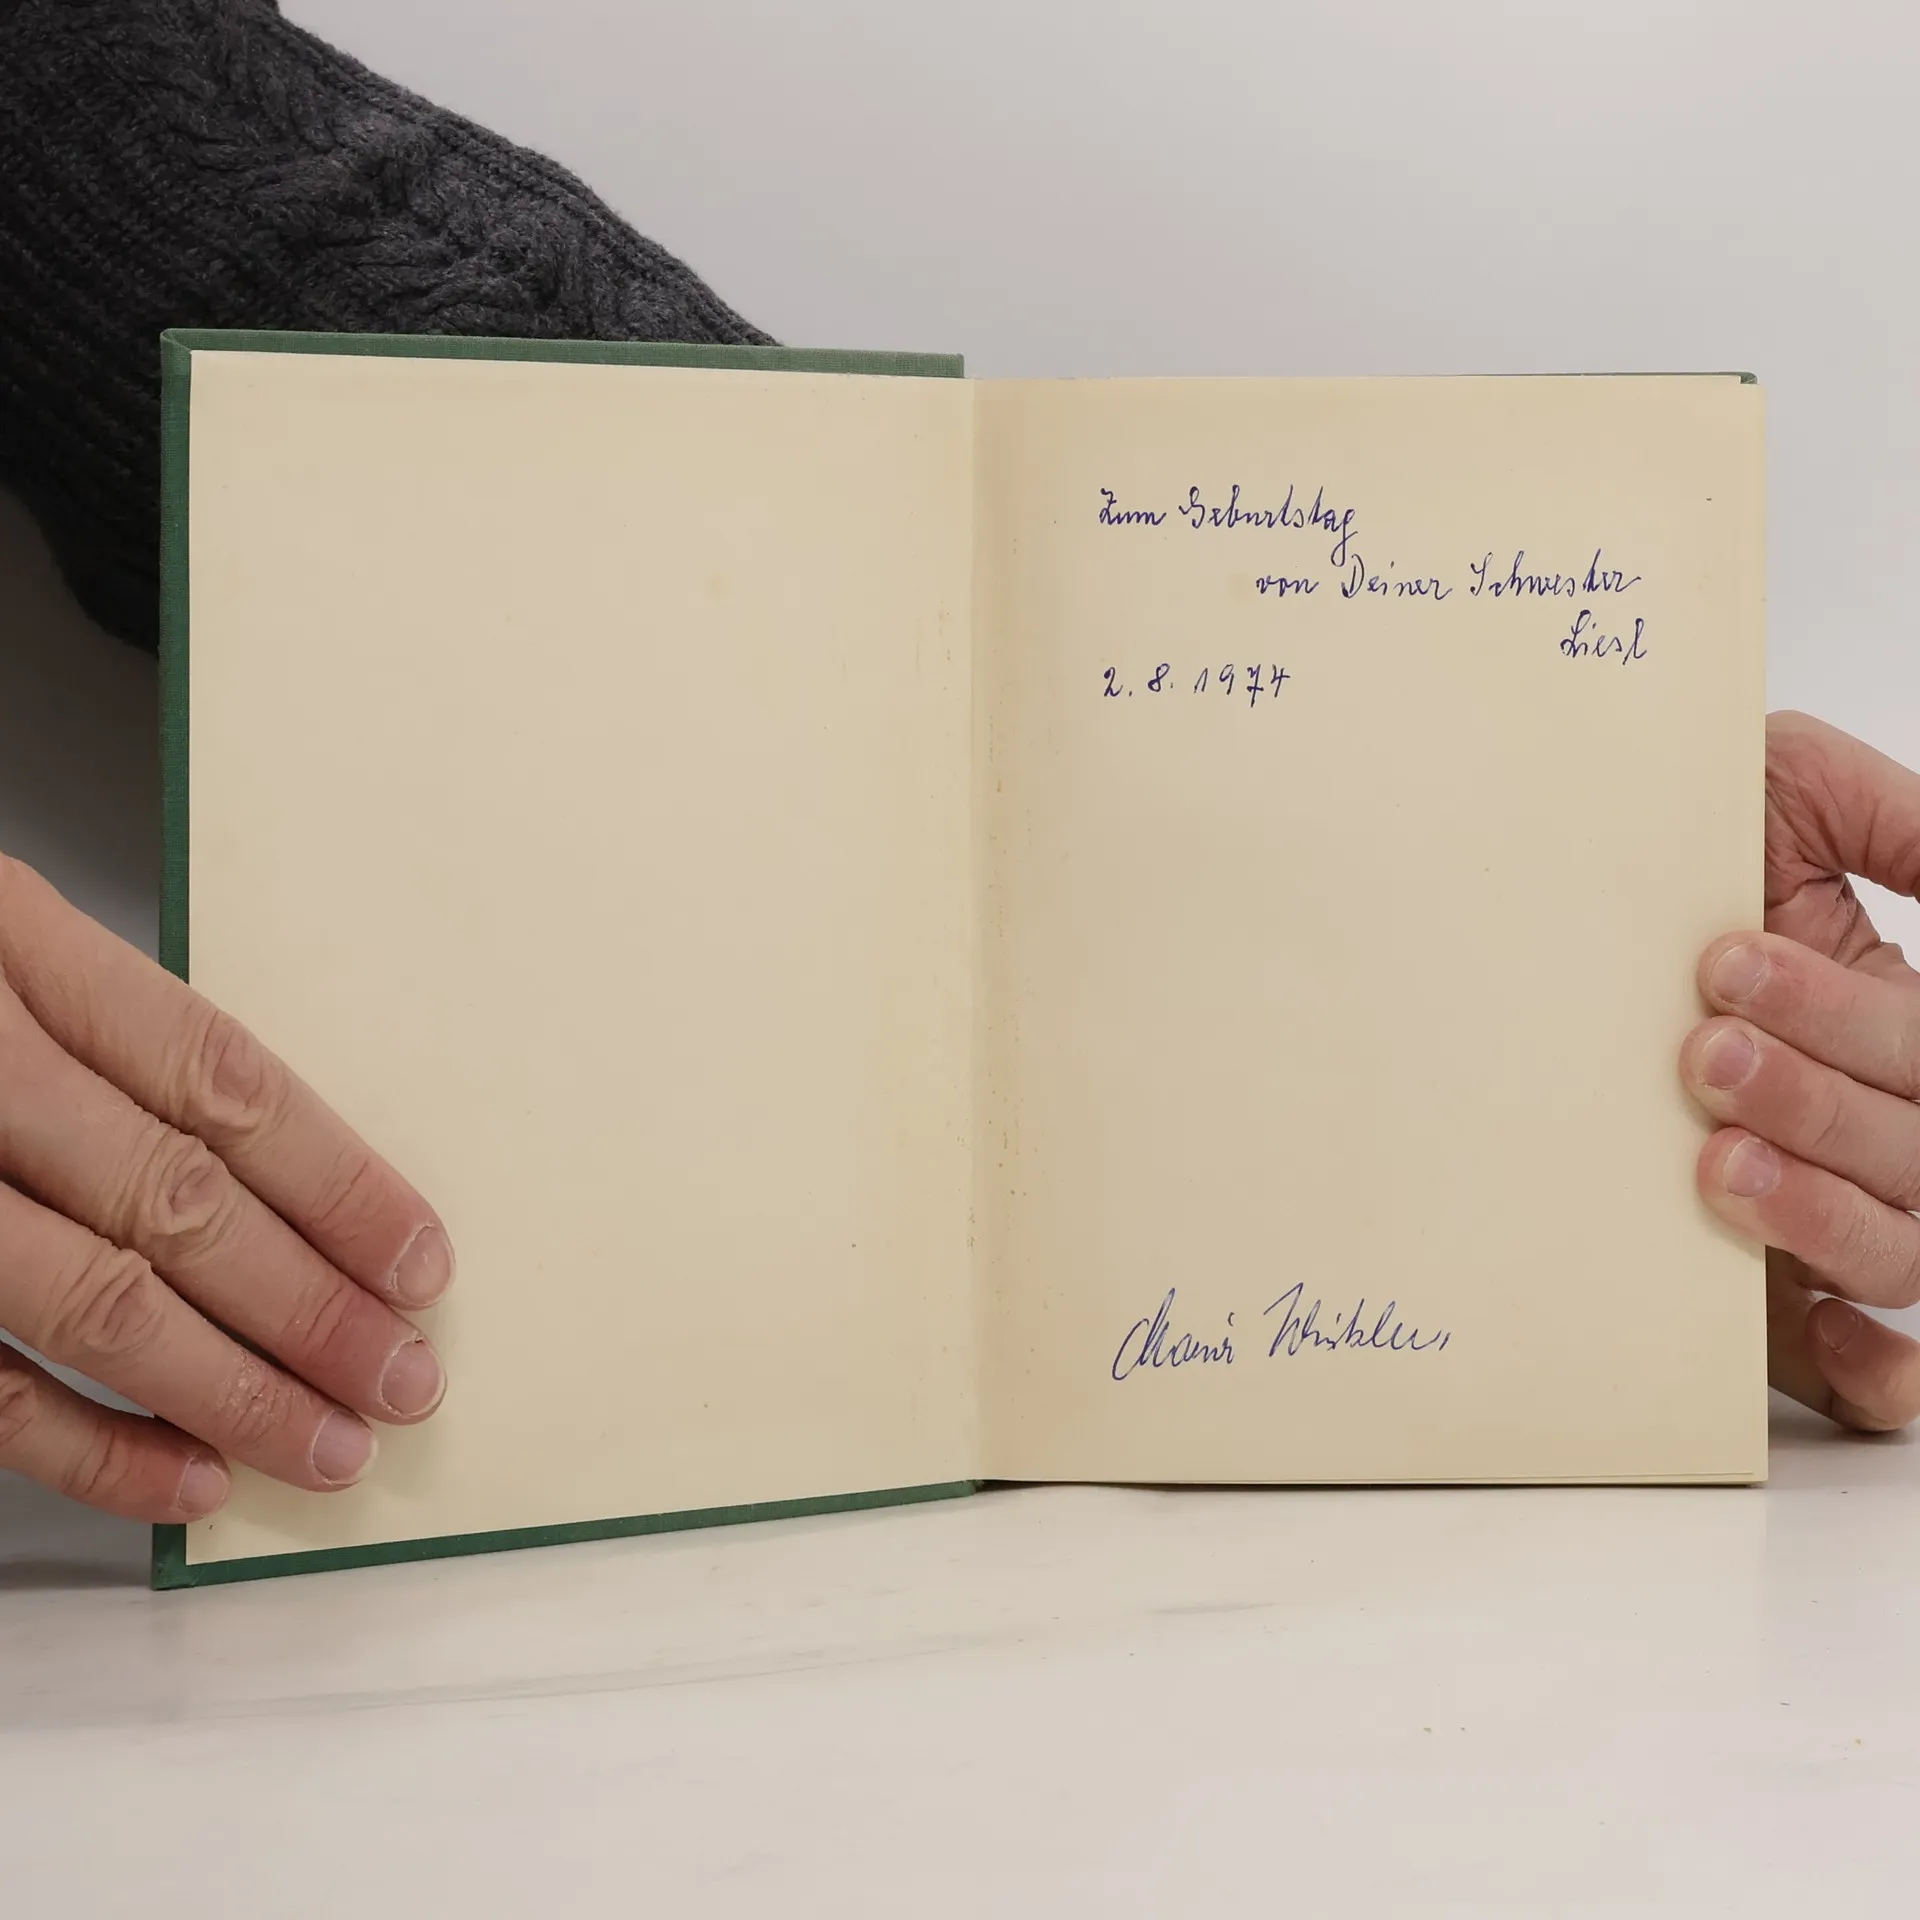 Zum Geburtstag
von Deiner Schwester
Liesl
2. 8. 1974
Maria Winkler,